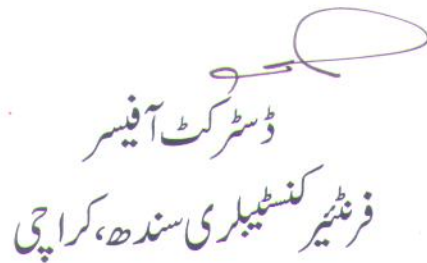 ڈسٹرکٹ آفیسر
فرنٹئیر کنسٹیبلری سندھ، کراچی